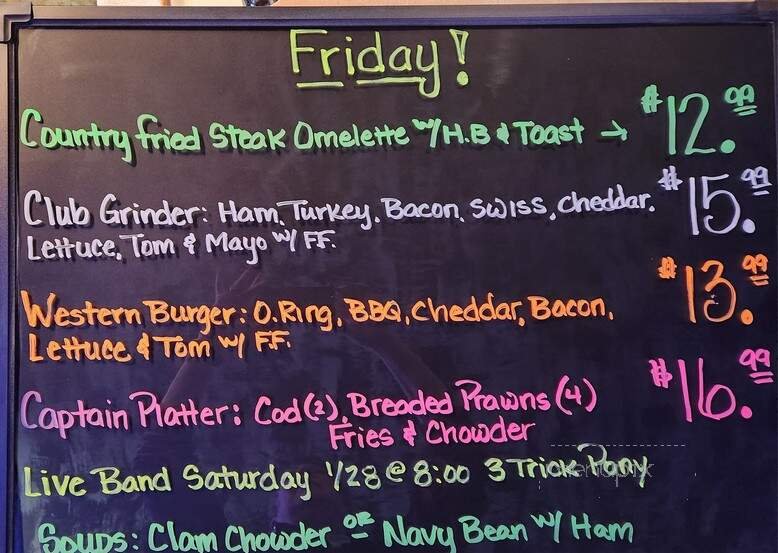 Friday!
Country fried Steak Omelette w/H.B & Toast → $12.99
Club Grinder: Ham, Turkey, Bacon, Swiss, Cheddar, $15.99
Lettuce, Tom & Mayo w/ FF.
Western Burger: O.Ring, BBQ, Cheddar, Bacon, $13.99
Lettuce & Tom w/ FF.
Captain Platter: Cod (2), Breaded Prawns (4) $16.99
Fries & Chowder
Live Band Saturday 1/28 @ 8:00 3 Trick Pony
Soups: Clam Chowder or Navy Bean w/ Ham